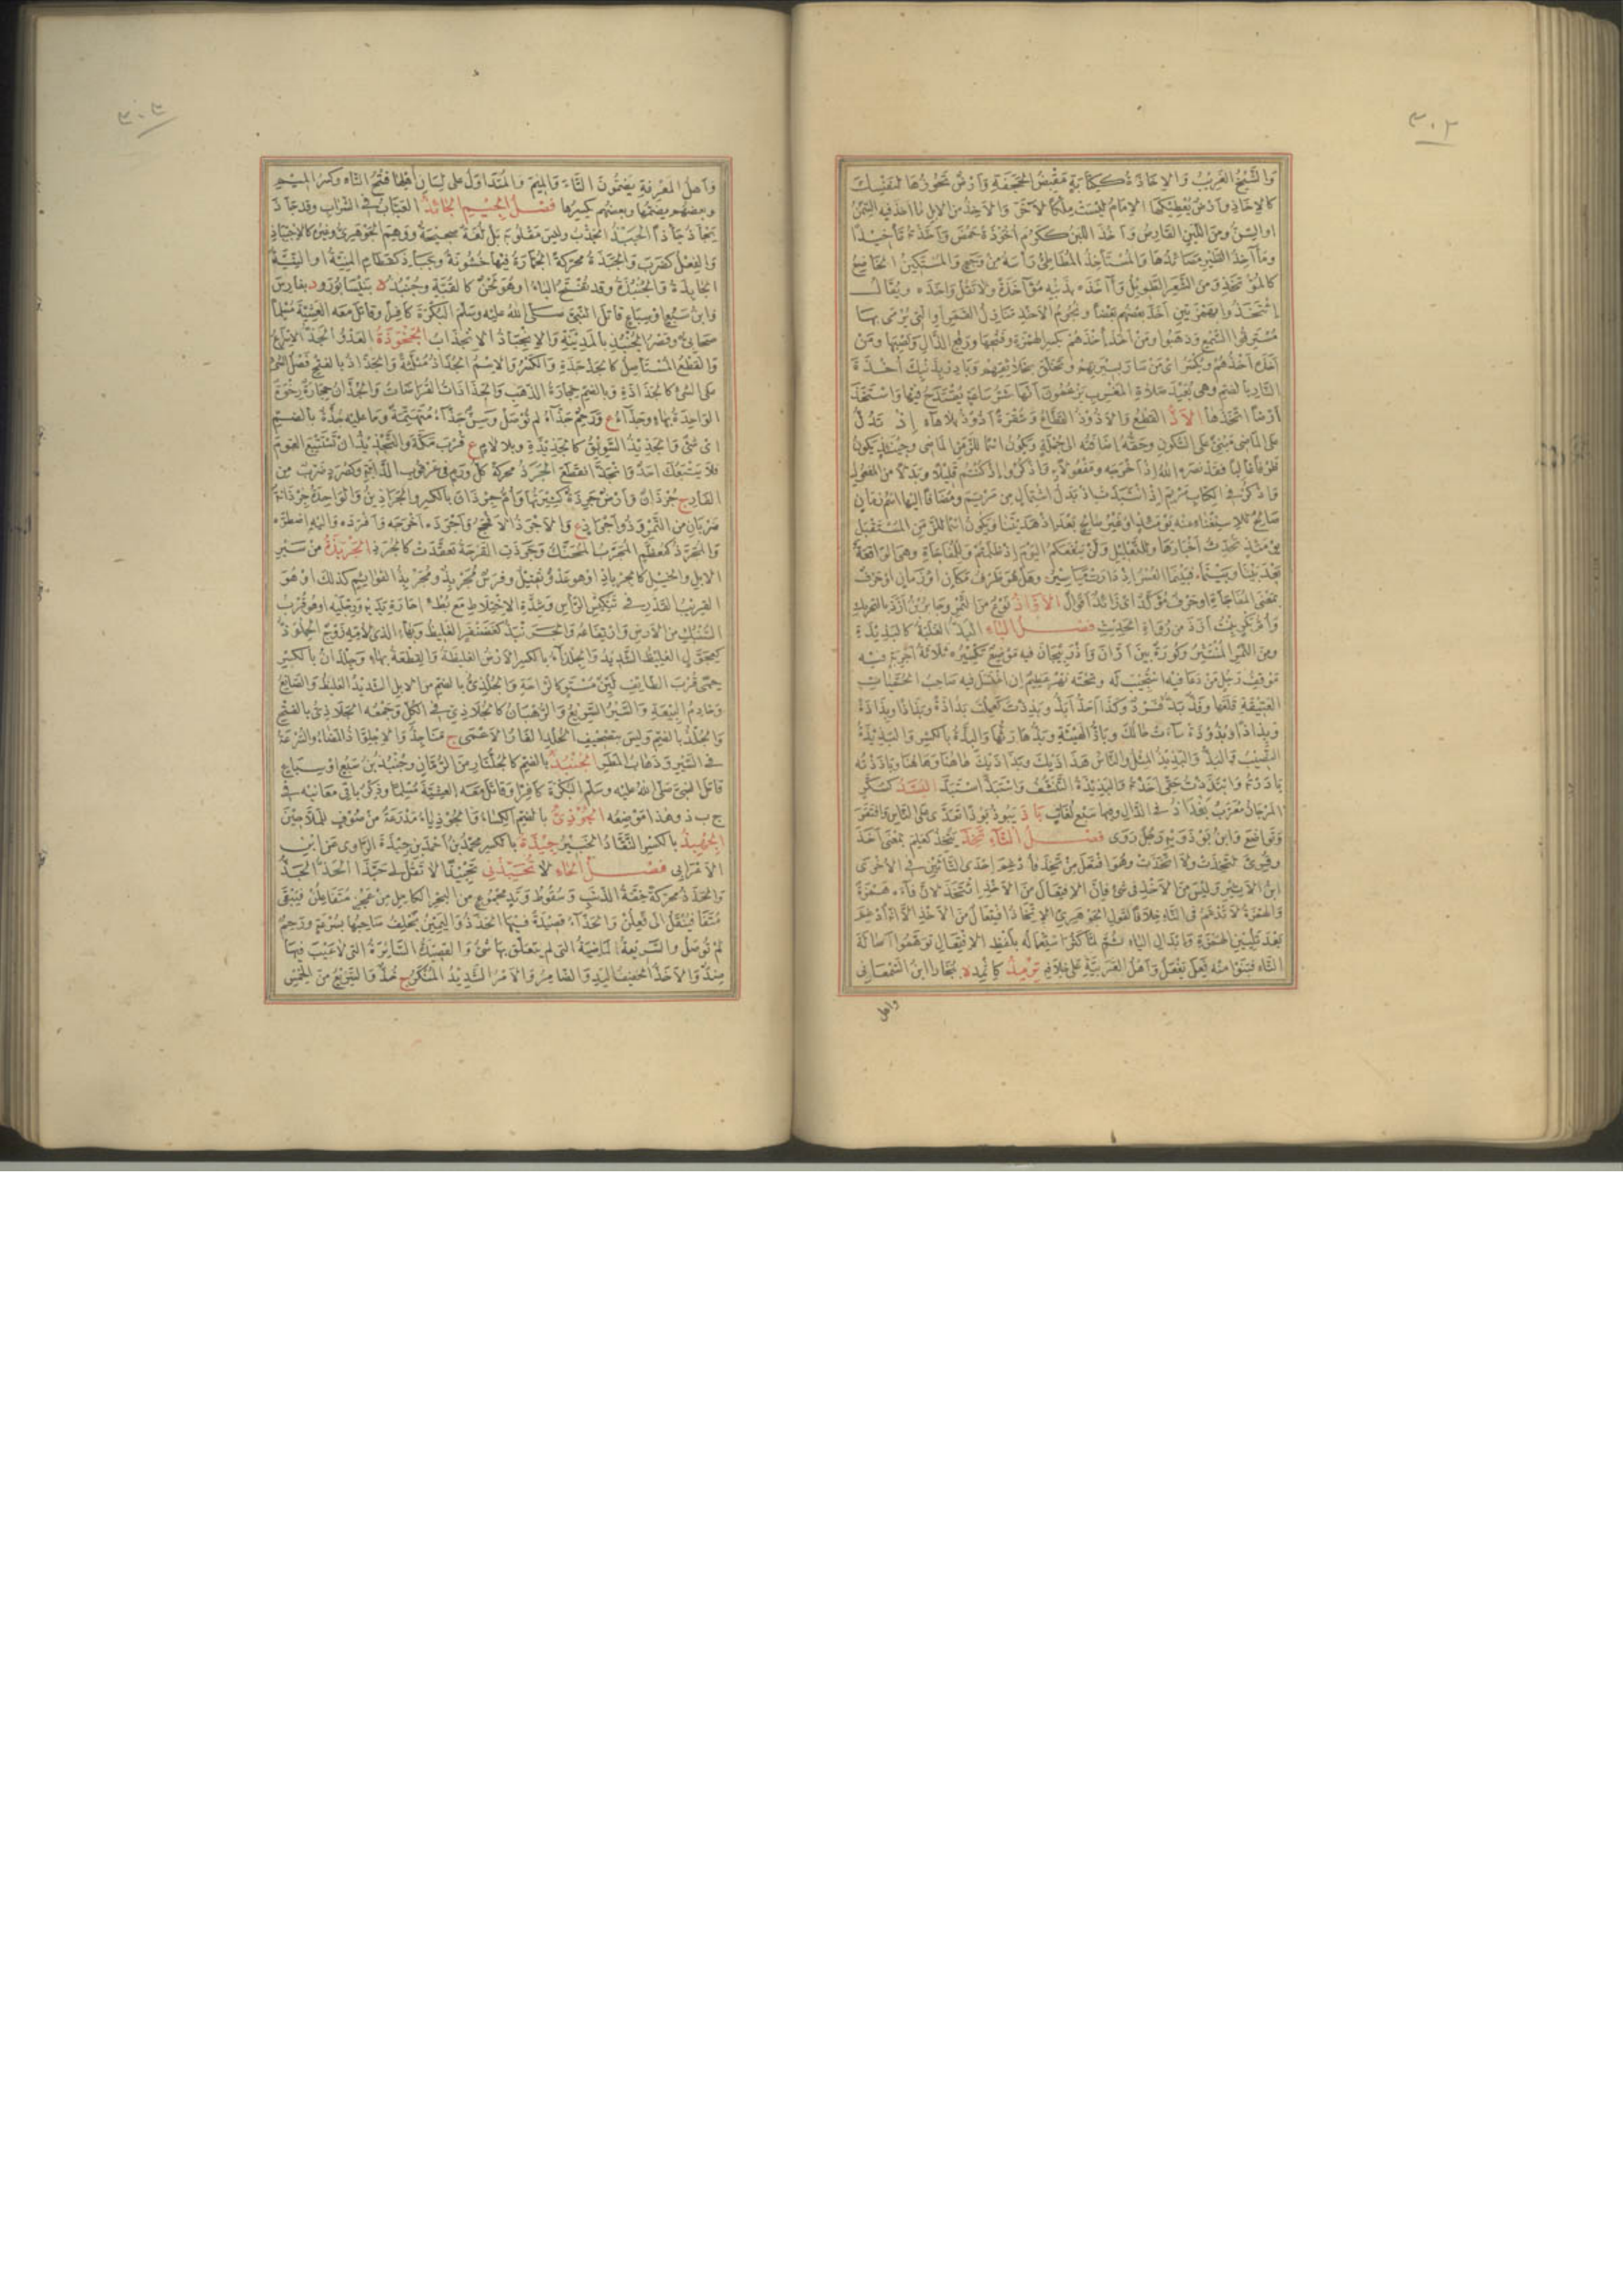 ٣٠٢
وَالشَّيْخُ الغَرِيبُ وَالإِخَاذَةُ كَكِتَابَةٍ مَقْبِضُ الحَجَفَةِ وَأَرْضٌ تَحُوزُهَا لِنَفْسِكَ
كالإِخَاذِ وأَرْضٌ يُعْطِيكَهَا الإِمَامُ لَيْسَتْ مِلْكًا لآخَرَ وَالآخِذُ مِنَ الإِبِلِ مَا أَخَذَ فيه السِّمَنُ
اوالسِنُّ ومِنَ اللَّبَنِ القَارِصُ وَأَخُذَ اللبَنُ كَكَرُمَ أُخُوذَةً حَمُضَ وَأَخَّذْتُهُ تَأْخِيذًا
ومَآخِذُ الطَّيْرِ مَصَائِدُهَا وَالمُسْتَأْخِذُ المُطَأْطِئُ رَأْسَهُ مِنْ وَجَعٍ وَالمُسْتَكِينُ الخَاضِعُ
كالمُؤْتَخِذِ وَمِنَ الشَّعَرِ الطَّوِيلُ وَآخَذَه بذَنْبِه مُؤَاخَذَةً وَلَا تَقُلْ وَاخَذَه ويُقَالُ
ائْتَخَذُوا بِهَمْزَتَيْنِ أَخَذَ بَعْضُهُم بَعْضًا ونُجُومُ الأَخْذِ مَنَازِلُ القَمَرِ أو التي يُرْمَى بِهَا
مُسْتَرِقُوا السَّمْعِ وَذَهَبُوا ومَنْ أَخَذَ أَخْذَهُمْ بكَسْرِ الهَمْزَةِ وفَتْحِهَا ورَفْعِ الذَّالِ وَنَصْبِهَا ومَنْ
أَخَذَه أَخْذُهُم ويُكْسَرُ اى مَنْ سَارَ بِسِيرَتِهِمْ وتَخَلَّقَ بِخَلَائِقِهِمْ وَبَادِرْ بِزَنْدِكَ أُخْذَةَ
النَّارِ بالضم وهى بُعَيْدَ صَلَاةِ المَغْرِبِ يَزْعُمُونَ أَنَّهَا شَرُّ سَاعَةٍ يُقْتَدَحُ فِيهَا وَاسْتَخَذَ
أَرْضًا اتَّخَذَهَا الأَذُّ القَطْعُ وَالأَذُوذُ القَطَّاعُ وشَفْرَةٌ أَذُوذٌ بِلَا هَاءٍ إِذْ تَدُلُّ
على المَاضِى مَبْنِىٌّ عَلَى السُّكُونِ وحَقُّهُ إِضَافَتُه الى جُمْلَةٍ وَيَكُونُ اسْمًا للزَّمَنِ المَاضِى وحِينَئِذٍ يَكُونُ
ظَرْفًا غَالِبًا فَقَدْ نَصَرَهُ اللهُ إِذْ أَخْرَجَه ومَفْعُولًا به وَاذْكُرُوا إِذْ كُنْتُمْ قَلِيلًا وبَدَلًا مِنَ المَفْعُولِ
وَاذْكُرْ فِى الكِتَابِ مَرْيَمَ إِذِ انْتَبَذَتْ اذ بَدَلُ اشْتِمَالٍ مِنْ مَرْيَمَ ومُضَافًا إِلَيْهَا اسْمُ زَمَانٍ
صَالِحٌ لِلاِسْتِغْنَاءِ عنه نَحْوُ يَوْمَئِذٍ اوغَيْرُ صَالِحٍ بَعْدَ إِذْ هَدَيْتَنَا ويَكُونُ اسْمًا لِلزَّمَنِ المُسْتَقْبَلِ
يَوْمَئِذٍ تُحَدِّثُ أَخْبَارَهَا ولِلتَّعْلِيلِ وَلَنْ يَنْفَعَكُمُ اليَوْمَ إِذْ ظَلَمْتُمْ ولِلْمُفَاجَأَةِ وهى الوَاقِعَةُ
بَعْدَ بَيْنَا وبَيْنَمَا فَبَيْنَمَا العُسْرُ إِذْ دَارَتْ مَيَاسِيرُ وَهَلْ هُوَ ظَرْفُ مَكَانٍ أَوْ زَمَانٍ أوحَرْفٌ
بِمَعْنَى المُفَاجَأَةِ اوحَرْفٌ مُؤَكِّدٌ اى زَائِدٌ أَقْوَالٌ الآزَاذُ نَوْعٌ مِنَ التَّمْرِ وَجَابِرُ بْنُ أَزَذَ بالتحريك
وَأُمُّ بَكْرٍ بِنْتُ أَزَذَ مِنْ رُوَاةِ الحَدِيثِ فَصْلُ البَاءِ البَذُّ الغَلَبَةُ كالبَذِيذَةِ
ومِنَ التَّمْرِ المُنْتَثِرُ وكُورَةٌ بَيْنَ أَرَّانَ وَأَذْرَبِيجَانَ فيه مَوْضِعٌ تَكْسِيرُهُ ثَلَاثَةُ أَجْرِبَةٍ فيه
مَوْقِفُ رَجُلٍ مَنْ دَعَا فِيهِ اسْتُجِيبَ لَهُ وتحتَه نَهْرٌ عَظِيمٌ إن اغْتَسَلَ فيه صَاحِبُ الحُمَّيَاتِ
العَتِيقَةِ قَلَعَهَا وفَذٌّ بَذٌّ فَرْدٌ وَكَذَا أَحَذُّ أَبَذُّ وبَذِذْتَ كَعَلِمْتَ بَذَاذَةً وبَذَاذًا وبِذَاذَةً
وبِذَاذًا وبُذُوذَةً سَاءَتْ حَالُكَ وبَاذُّ الهَيْئَةِ وبَذُّهَا رَثُّهَا وَالبِذَّةُ بالكَسْرِ وَالبَذِيذَةُ
النَّصِيبُ وَالبَذُّ وَالبَذِيذُ المِثْلُ وَالنَّاسُ هَذَاذَيْكَ وَبَذَاذَيْكَ هَاهُنَا وَهَاهُنَا وبَاذَذْتُه
بَادَرْتُهُ وَابْتَذَذْتُ حَقِّى أَخَذْتُه وَالبَذْبَذَةُ التَّقَشُّفُ وَاسْتَبَذَّ اسْتَبَدَّ البُسَّذُ كَسُكَّرٍ
المَرْجَانُ مُعَرَّبٌ بَغْدَاذُ فى الدَّالِ وفيها سَبْعُ لُغَاتٍ بَاذَ يَبُوذُ بَوْذًا تَعَدَّى عَلَى النَّاسِ وَافْتَقَرَ
وَتَوَاضَعَ وَابنُ بُوذَوَيْهِ رَجُلٌ رَوَى فَصْلُ التَّاءِ تَخِذَ يَتْخَذُ كعَلِمَ بِمَعْنَى أَخَذَ
وقُرِئَ لَتَخِذْتَ ولَاتَّخَذْتَ وهُوَ افْتَعَلَ مِنْ تَخِذَ فَأُدْغِمَ إِحْدَى التَّاءَيْنِ فِى الأُخْرَى
ابنُ الأَثِيرِ وَلَيْسَ مِنَ الأَخْذِ فى شَئٍ فَإِنَّ الاِفْتِعَالَ مِنَ الأَخْذِ ائْتَخَذَ لأَنَّ فَاءَه هَمْزَةٌ
وَالهَمْزَةُ لَا تُدْغَمُ فِى التَّاءِ خِلَافًا لِقَوْلِ الجَوْهَرِىِّ الاِتِّخَاذُ افْتِعَالٌ مِنَ الأَخْذِ إِلَّا أَنَّهُ أُدْغِمَ
بَعْدَ تَلْيِينِ الهَمْزَةِ وَإِبْدَالِ اليَاءِ تَاءً ثُمَّ لَمَّا كَثُرَ اسْتِعْمَالُهُ بِلَفْظِ الاِفْتِعَالِ تَوَهَّمُوا أَصَالَةَ
التَّاءِ فَبَنَوْا مِنْهُ فَعِلَ يَفْعَلُ وَأَهْلُ العَرَبِيَّةِ عَلَى خِلَافِه تِرْمِذُ كَإِثْمِدٍ د بِبُخَارَا ابنُ السَّمْعَانِى
وأهل
٣٠٣
وَأَهْلُ المَعْرِفَةِ يَضُمُّونَ التَّاءَ وَالمِيمَ وَالمُتَدَاوَلُ على لِسَانِ أَهْلِهَا فَتْحُ التَّاءِ وكَسْرُ المِيمِ
وبعضُهُم يضمُّها وبعضُهم يكسِرُها فَصْلُ الجِيمِ الجَائِذُ العَبَّابُ فى الشَّرَابِ وقد جَأَذَ
يَجْأَذُ جَأْذًا الجَبْذُ الجَذْبُ وليس مَقْلُوبَهُ بَلْ لُغَةٌ صَحِيحَةٌ ووَهِمَ الجَوْهَرِىُّ وغيرُه كالاِجْتِبَاذِ
وَالفِعْلُ كضَرَبَ وَالجَبَذَةُ محرّكةً الجُمَّارَةُ فيها خُشُونَةٌ وجَبَاذِ كقَطَامِ المَنِيَّةُ او النِّيَّةُ
الجَابِذَةُ وَالجُنْبُذَةُ وقد تُفْتَحُ البَاءُ او هُوَ لَحْنٌ كالقُبَّةِ وجُنْبُذُ ة بِنَيْسَابُورَ ود بفَارِسَ
وابنُ سَبُعٍ اوسِبَاعٍ قاتَلَ النَّبِىَّ صَلَّى اللهُ عليه وسَلَّم البُكْرَةَ كَافِرًا وقاتَلَ معه العَشِيَّةَ مُسْلِمًا
صَحَابِىٌّ وقَصْرُ الجُنْبُذِ بِالمَدِينَةِ وَالاِنْجِبَاذُ الاِنْجِذَابُ الجَخْوَذَةُ العَدْوُ الجَذُّ الإِسْرَاعُ
وَالقَطْعُ المُسْتَأْصِلُ كَالجَذْجَذَةِ وَالكَسْرُ وَالاِسْمُ الجُذَاذُ مُثَلَّثَةً وَالجَذَاذُ بالفَتْحِ فَصْلُ الشَّئِ
عَلَى الشَّئِ كالجَذَاذَةِ وبالضم حِجَارَةُ الذَّهَبِ وَالجُذَاذَاتُ القُرَاضَاتُ وَالجُذَّانُ حِجَارَةٌ رِخْوَةٌ
الوَاحِدَةُ بِهَاءٍ وجَذَّاءُ ع وَرَحِمٌ جَذَّاءُ لَمْ تُوصَلْ وسِنٌّ جَذَّاءُ مُتَهَتِّمَةٌ وما عليه جُذَّةٌ بالضم
اى شَئٌ وَالجَذِيذُ السَّوِيقُ كالجَذِيذَةِ وبلا لامٍ ع قُرْبَ مَكَّةَ والتَّجْذِيذُ أن تَسْتَتْبِعَ القَومَ
فلا يَتْبَعُكَ أَحَدٌ وَانْجَذَّ انْقَطَعَ الجَرَذُ محركةً كُلُّ وَرَمٍ فِى عُرْقُوبِ الدَّابَّةِ وكصُرَدٍ ضَرْبٌ مِنَ
الفَأْرِ ج جِرْذَانٌ وأَرْضٌ جَرِذَةٌ كَثِيرَتُهَا وَأُمُّ جِرْذَانَ بالكسرِ والجُرَاذِينُ وَالوَاحِدَةُ جِرْذَانَةٌ
ضَرْبَانِ مِنَ التَّمْرِ وَذُو أَجْرَاذٍ ع وَالأَجْرَذُ الأَفْحَجُ وأَجْرَذَه أَخْرَجَه وَأَفْرَدَه وإليه اضْطَرَّه
وَالمُجَرَّذُ كمُعَظَّمٍ المُجَرَّبُ المُحَنَّكُ وجَرِذَتِ القَرْحَةُ تَعَقَّدَتْ كالجُرَذِ الجَرْبَذَةُ مِنْ سَيْرِ
الإِبِلِ والخَيْلِ كالجِرْبَاذِ اوهو عَدْوٌ ثَقِيلٌ وفَرَسٌ مُجَرْبِذٌ ومُجَرْبِذُ القَوَائِمِ كذلك اوهُوَ
القَرِيبُ القَدْرِ فى تَنْكِيسِ الرَّأْسِ وشِدَّةِ الاِخْتِلَاطِ مع بُطْءِ إِحَارَةِ يَدَيْهِ ورِجْلَيْه اوهُو قُرْبُ
السُّنْبُكِ مِنَ الأَرْضِ وَارْتِفَاعُه وَالجَرَنْبَذُ كغَضَنْفَرٍ الغَلِيظُ وبِهَاءٍ الذى لأُمِّهِ زَوْجٌ الجِلَّوْذُ
كعِجَّوْلٍ الغَلِيظُ الشَّدِيدُ وَالجِلْذَاءُ بالكسرِ الأَرْضُ الغَلِيظَةُ وَالقِطْعَةُ بِهَاءٍ وجِلْذَانُ بالكسر
حِمًى قُرْبَ الطَّائِفِ لَيِّنٌ مُسْتَوٍ كَالرَّاحَةِ وَالجُلْذِىُّ بالضم مِن الإِبِلِ الشَّدِيدُ الغَلِيظُ والصَّانِعُ
وخَادِمُ البِيعَةِ وَالسَّيْرُ السَّرِيعُ وَالرُّهْبَانُ كالجُلَاذِىِّ فى الكُلِّ وجَمْعُه الجَلَاذِىُّ بالفتحِ
وَالجُلْذُ بالضم وليس بتصحيفِ الخُلْدِ الفَأْرُ الأَعْمَى ج مَنَاجِذُ وَالاِجْلِوَّاذُ المَضَاءُ وَالسُّرْعَةُ
فى السَّيْرِ وذَهَابُ المَطَرِ الجُنْبُذُ بالضم كالجُلَّنَارِ مِنَ الرُّمَّانِ وجُنْبُذُ بنُ سَبُعٍ اوسِبَاعٍ
قاتَلَ النبىَّ صَلَّى اللهُ عليه وسَلَّم البُكْرَةَ كَافِرًا وقَاتَلَ معه العَشِيَّةَ مُسْلِمًا وذِكْرُ باقِى مَعَانِيه فى
ج ب ذ وهذا مَوْضِعُه الجُوذِىُّ بالضم الكِسَاءُ وَالجُوذِيَاءُ مَدْرَعَةٌ مِنْ صُوفٍ لِلْمَلَّاحِينَ
الجِهْبِذُ بالكَسْرِ النَّقَّادُ الخَبِيرُ جِيذَةُ بالكسرِ محمدُ بنُ أحمدَ بنِ جِيذَةَ الرَّاوِى عن ابنِ
الأَعْرَابِى فَصْلُ الحَاءِ لا تُحَبِّذْنِى تَحْبِيذًا لا تَقُلْ لِى حَبَّذَا الحَذُّ الجَذُّ
وَالحَذَذُ محركةً خِفَّةُ الذَّنَبِ وسُقُوطُ وَتَدٍ مَجْمُوعٍ مِن البَحْرِ الكَامِلِ مِنْ عَجُزِ مُتَفَاعِلُنْ فيَبْقَى
مُتَفَا فيُنْقَلُ إلى فَعِلُنْ وَالحَذَّاءُ قَصِيدَةٌ فيها الحَذَذُ وَاليَمِينُ يَحْلِفُ صَاحِبُهَا بسُرْعَةٍ ورَحِمٌ
لَمْ تُوصَلْ والسَّرِيعَةُ المَاضِيَةُ التى لم يَتَعَلَّق بها شَئٌ وَالقَصِيدَةُ السَّائِرَةُ التى لا عَيْبَ فيها
ضِدٌّ وَالأَحَذُّ الخَفِيفُ اليَدِ وَالضَّامِرُ وَالأَمْرُ الشَّدِيدُ المُنْكَرُ ج حُذٌّ وَالسَّرِيعُ مِنَ الخِمْسِ